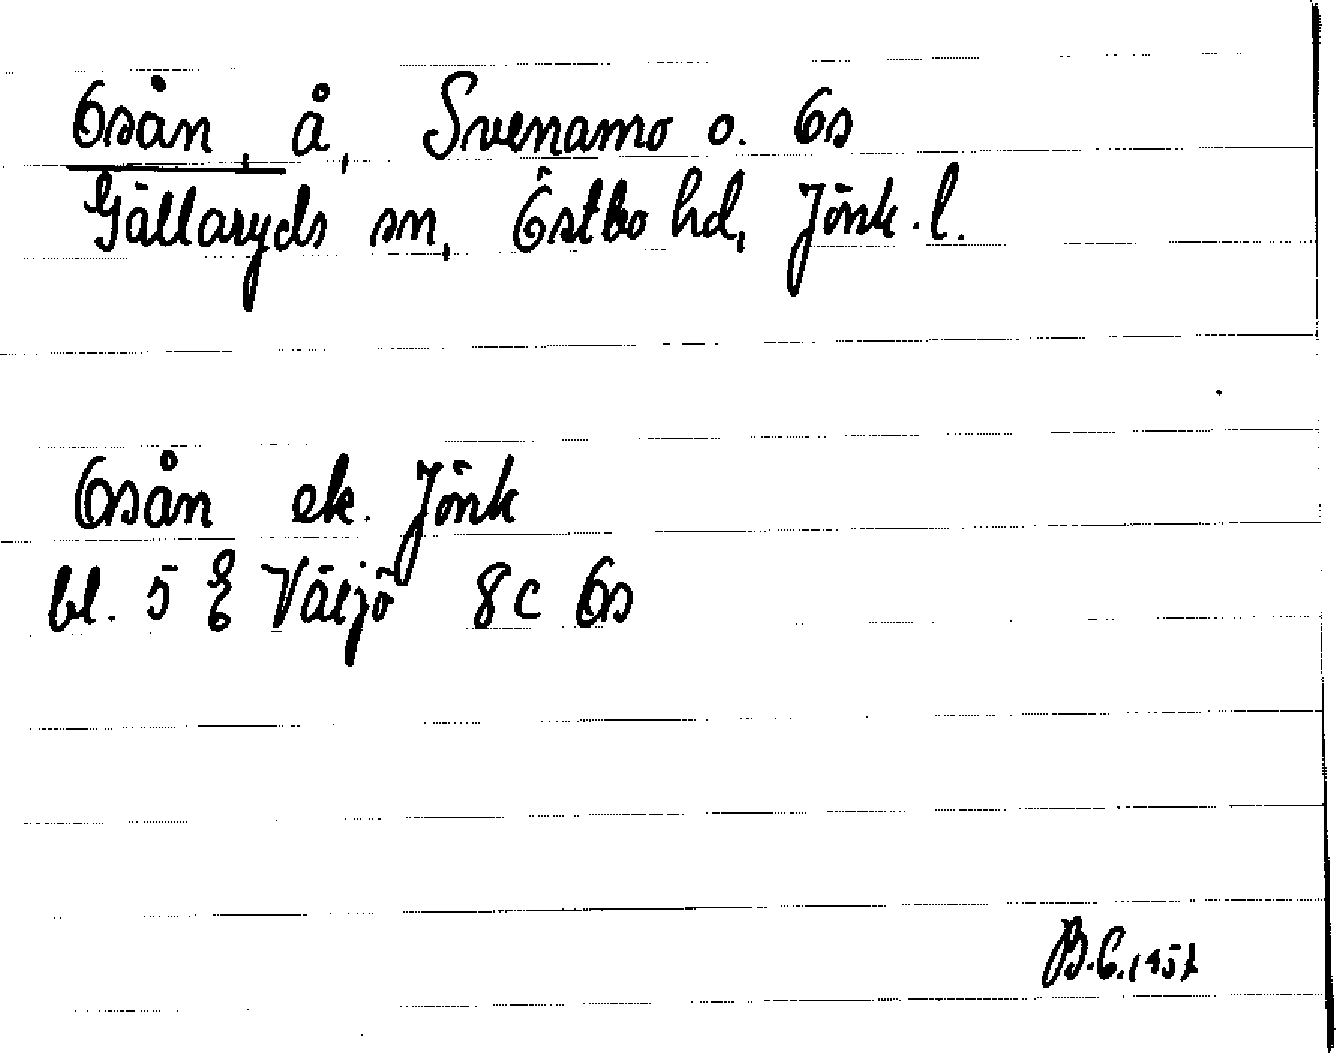 Osån, å, Svenamo o. Os
Gällaryds sn, Östbo hd, Jönk. l.
Osån ek. Jönk
bl. 5 E Växjö 8c Os